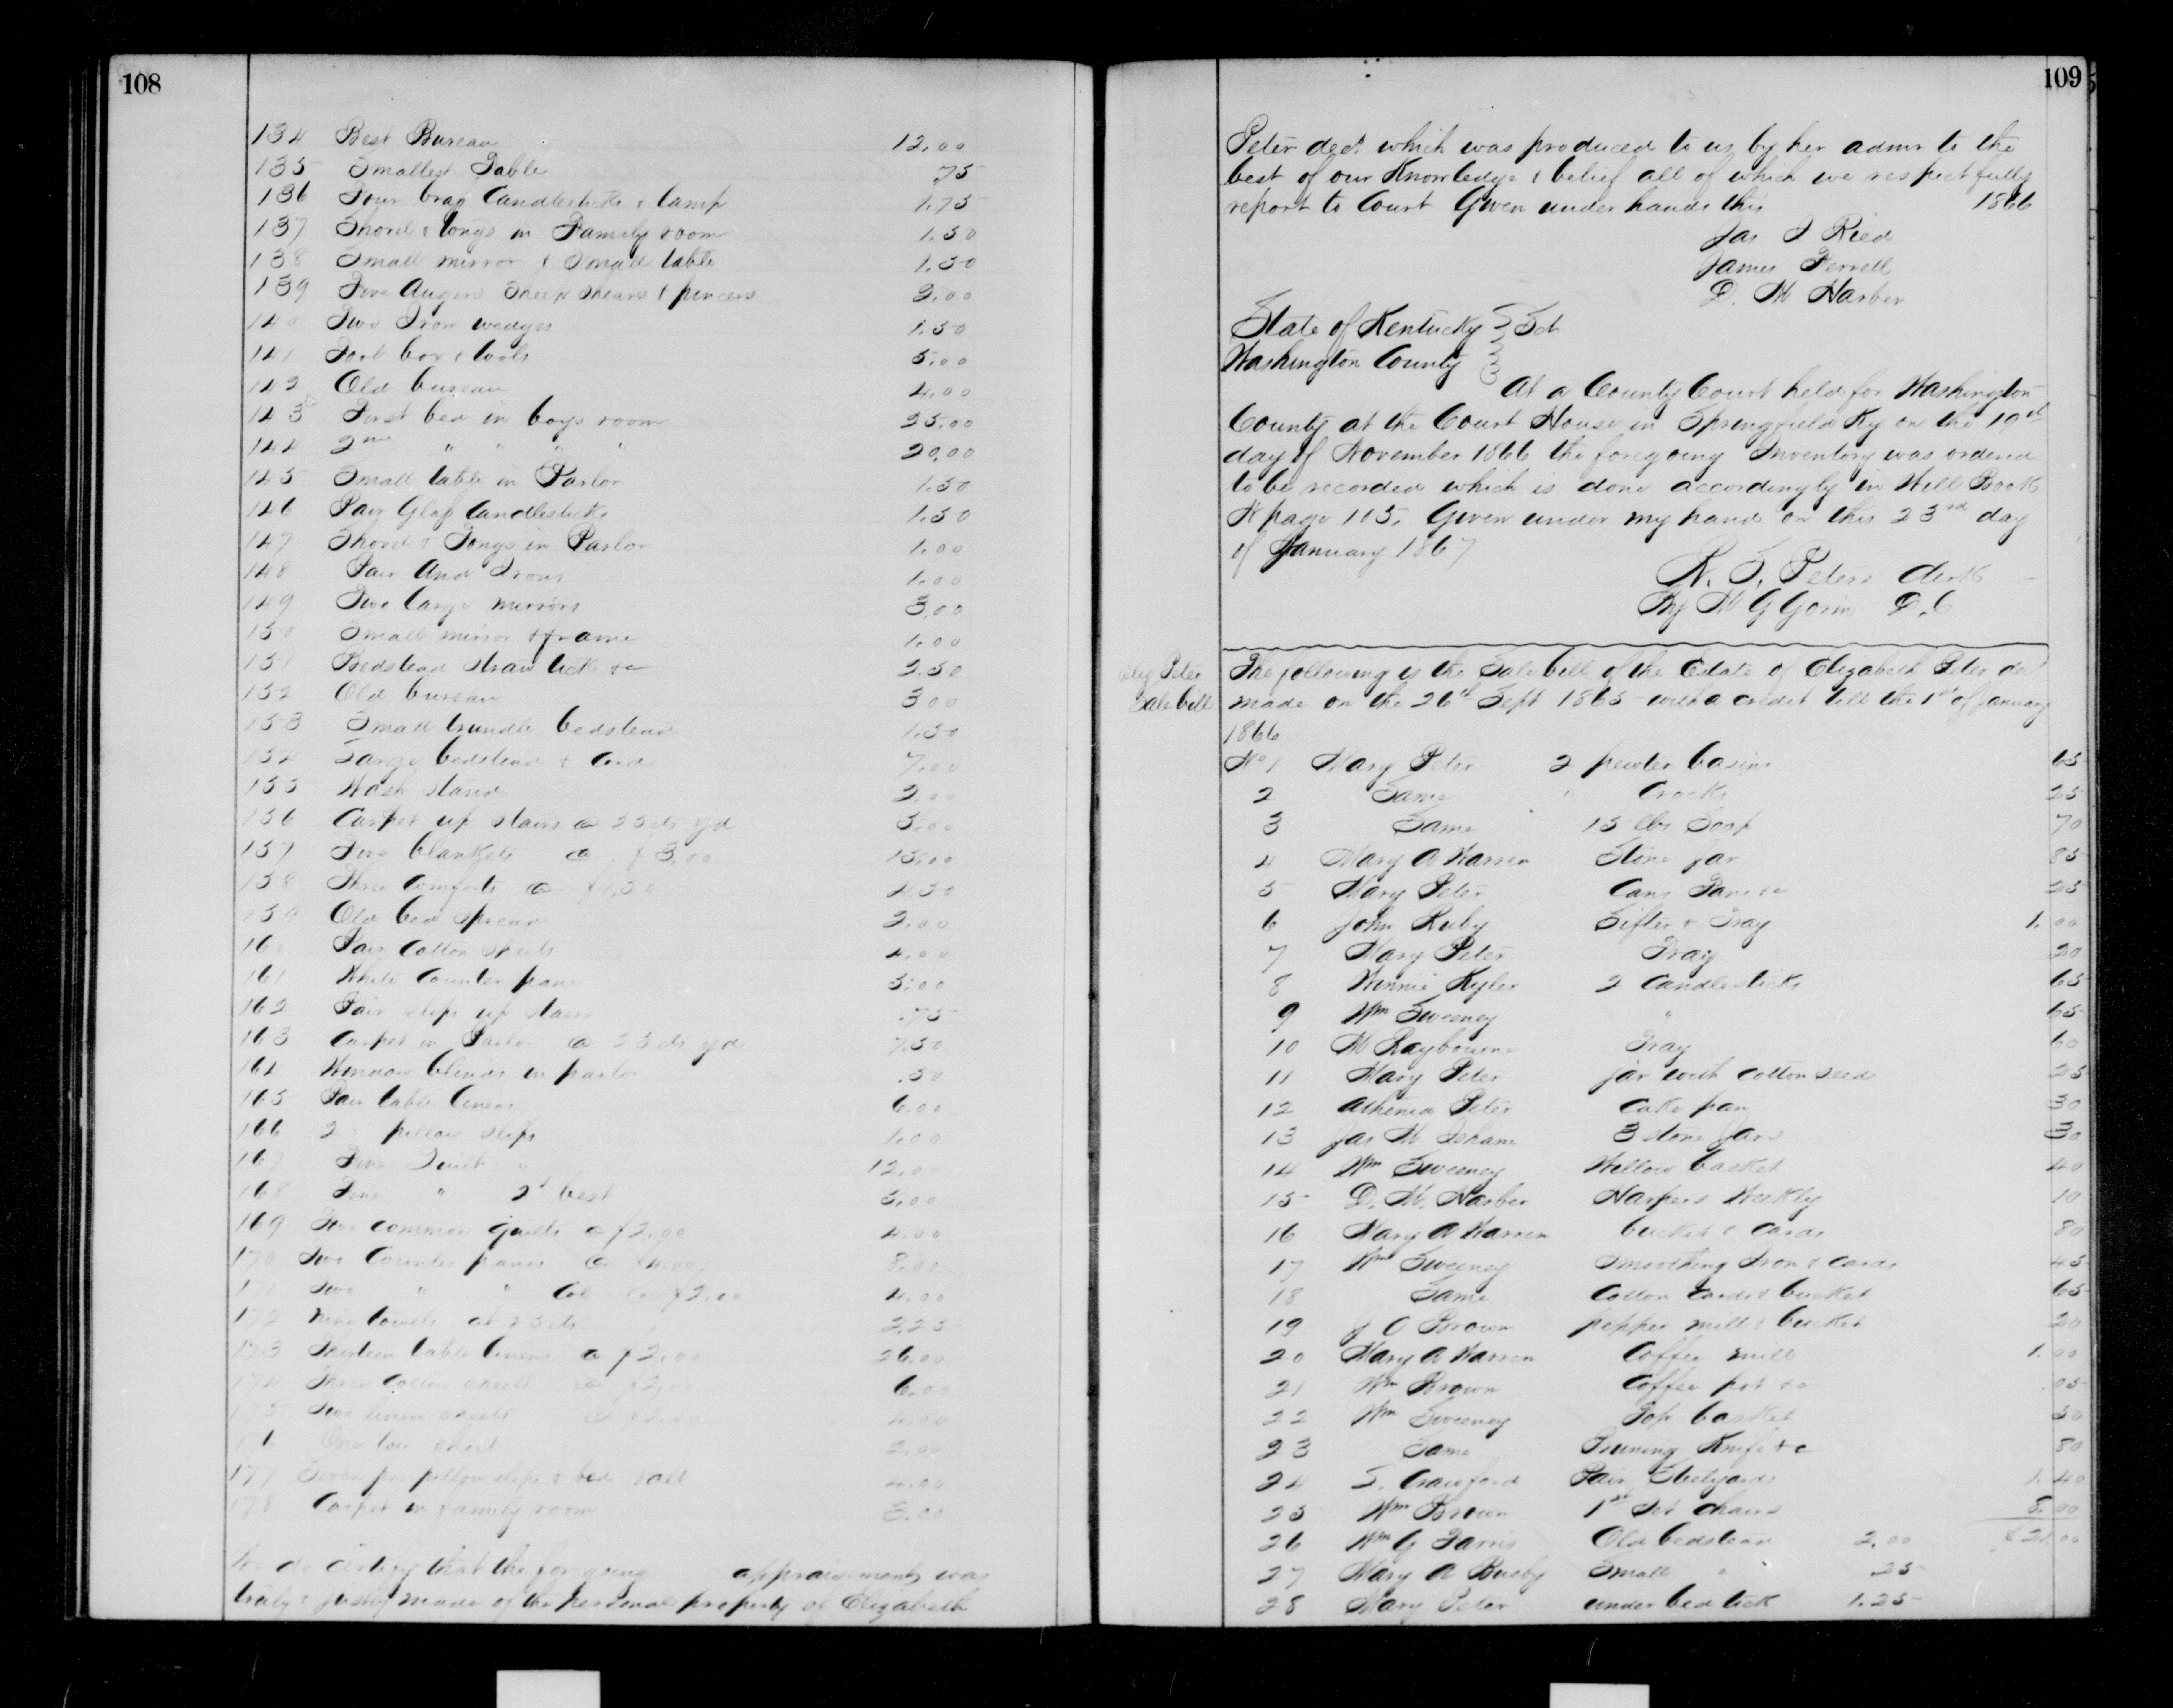 108
134 Best Bureau 12.00
135 Smallest Table .75
136 Four brass Candlesticks & lamp 1.75
137 Shovel & tongs in Family room 1.50
138 Small mirror & Small table 1.50
139 Five Augers Sheep Shears & pincers 2.00
140 Two Iron wedges 1.50
141 Tool box & tools 5.00
142 Old bureau 4.00
143 First bed in boys room 25.00
144 2nd " " " " 20.00
145 Small table in Parlor 1.50
146 Pair Glass Candlesticks 1.50
147 Shovel & Tongs in Parlor 1.00
148 Pair And Irons 1.00
149 Two large mirrors 3.00
150 Small mirror & frame 1.00
151 Bedstead straw tick &c 2.50
152 Old bureau 300
153 Small trundle bedstead 1.50
154 Large bedstead & Cord 7.00
155 Wash Stand 2.00
156 Carpet up stairs @ 25 cts yd 5.00
157 Five blankets @ $3.00 15.00
158 Three Comforts @ $1.50 4.50
159 Old bed spread 2.00
160 Pair Cotton sheets 4.00
161 White Counter pane 5.00
162 Pair slips up stairs .75
163 Carpet in Parlor @ 25 cts yd 7.50
164 Window blinds in parlor .50
165 Pair table linens 6.00
166 2 " pillow slips 1.00
167 Fine Quilt " 12.00
168 Fine " 2d best 5.00
169 Two common quilts @ $2.00 4.00
170 Two Counter panes @ $4.00 8.00
171 Two " " Col @ $2.00 4.00
172 Nine towels at 25 cts 2.25
173 Thirteen table linens @ $2.00 26.00
174 Three Cotton sheets @ $2.00 6.00
175 Two linen sheets @ $2.00 4.00
176 One tow sheet 2.00
177 Seven prs pillow slips & bed 4.00
178 Carpet in family room 3.00
We do certify that the foregoing appraisements was
truly & justly made of the personal property of Elizabeth
109
Peter decd. which was produced to us by her admr to the
best of our Knowledge & belief all of which we respectfully
report to Court Given under hands this 1866
Jas I Ried
James Ferrell
D. M Harber
State of Kentucky } Sct
Washington County }
At a County Court held for Washington
County at the Court House in Springfield Ky on the 19th
day of November 1866 the foregoing Inventory was ordered
to be recorded which is done accordingly in Will Book
N page 105. Given under my hand on this 23rd day
of January 1867
W. F. Peters Clerk
By M G Gorin D.C
Eliz Peter
Sale bill
The following is the Sale bill of the Estate of Elizabeth Peter decd
made on the 26th Sept 1865 with a credit till the 1st of January
1866
No 1 Mary Peter 2 pewter basins 65
2 Same " Crocks 25
3 Same 15 lbs Soap 70
4 Mary A Warren Stone Jar 85
5 Mary Peter Cans Pans &c 25
6 John Ruby Sifter & Tray 1.00
7 Mary Peter Tray 20
8 Winnie Kyler 2 Candlesticks 65
9 Wm Sweeney " 65
10 M Raybourne Tray 60
11 Mary Peter jar with cotton seed 25
12 Athenia Peter Cake pan 30
13 Jas M Isham 3 stone Jars 30
14 Wm Sweeney Willow basket 40
15 D. M. Harber Harpers Weekly 10
16 Mary A Warren bucket & cards 80
17 Wm Sweeney Smoothing Iron & cards 45
18 Same Cotton Cards & bucket 65
19 J O Brown pepper mill & bucket 20
20 Mary A Warren Coffee mill 1.00
21 Wm Brown Coffee pot &c .05
22 Wm Sweeney Top basket 50
23 Same Pruning Knife &c 80
24 S. Crawford Pair Steelyards 1.40
25 Wm Brown 1st Set chairs 8.00
26 Wm G Farris Old bedstead 2.00 $21.00
27 Mary A Busby Small " 25
28 Mary Peter under bed tick 1.25